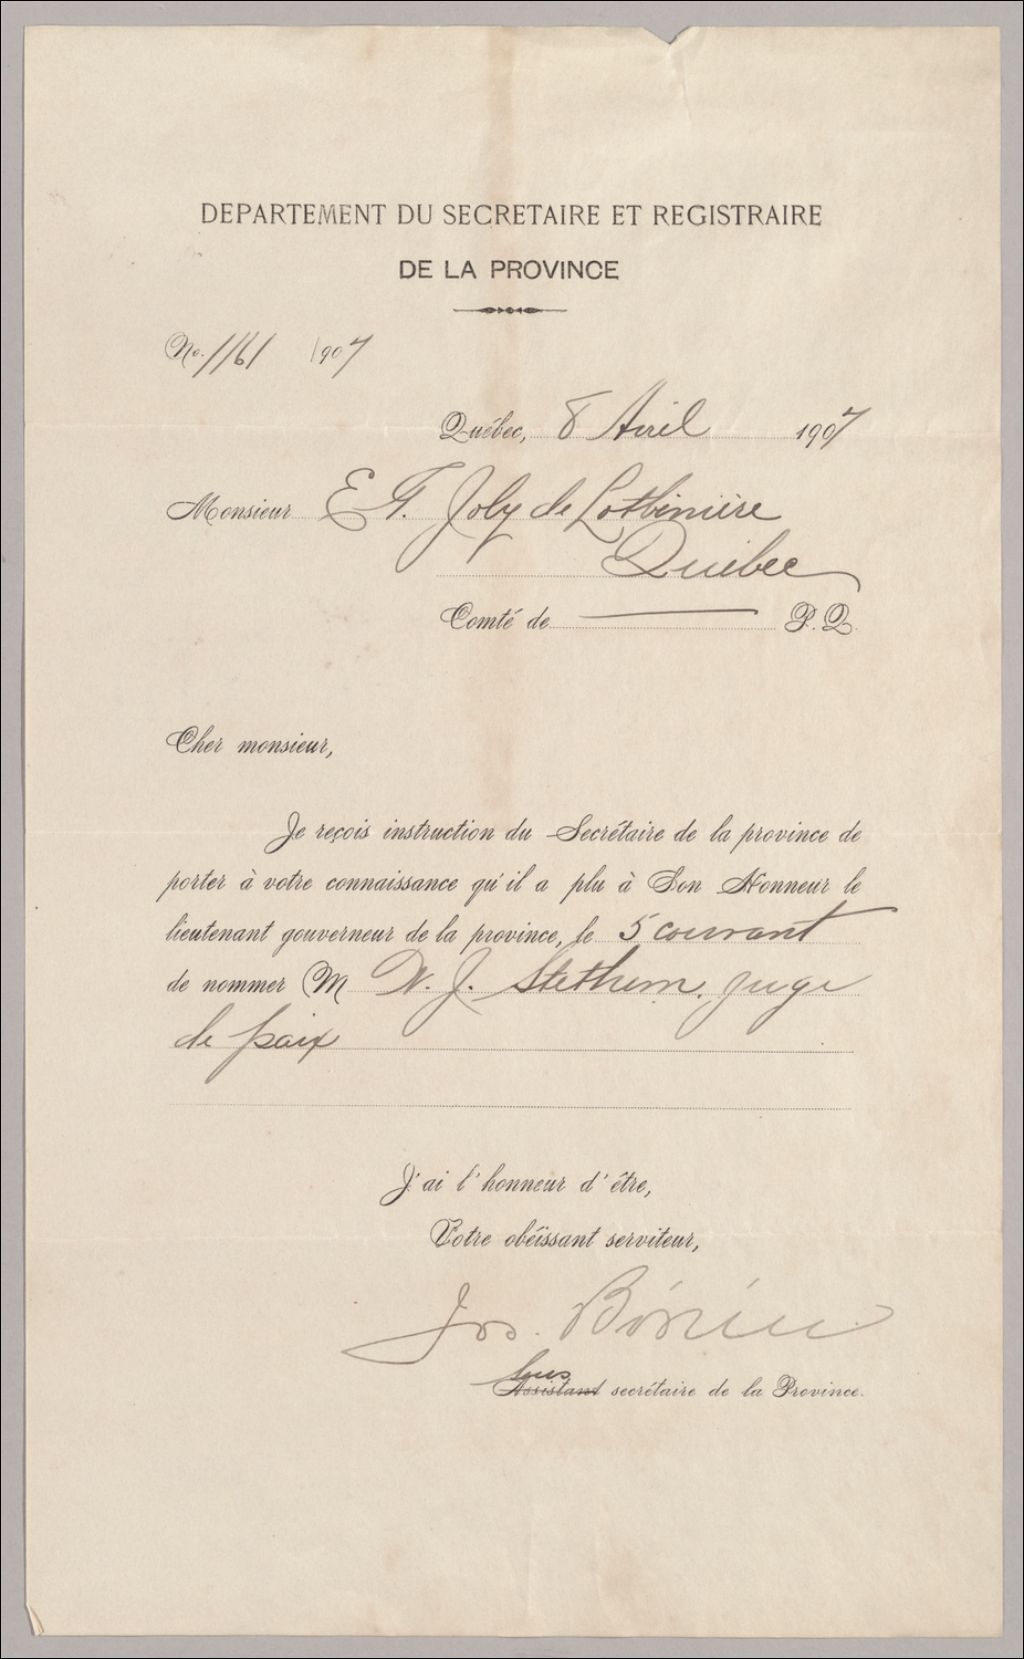 DEPARTEMENT DU SECRETAIRE ET REGISTRAIRE
DE LA PROVINCE
No. 1161 1907
Québec, 8 Avril 1907
Monsieur E. G. Joly de Lotbinière
Québec
Comté de P. Q.
Cher monsieur,
Je reçois instruction du Secrétaire de la province de
porter à votre connaissance qu'il a plu à Son Honneur le
lieutenant gouverneur de la province, le 5 courant
de nommer M W. J. Stethem, juge
de paix
J'ai l'honneur d'être,
Votre obéissant serviteur,
Jos.
Sous
Assistant secrétaire de la Province.